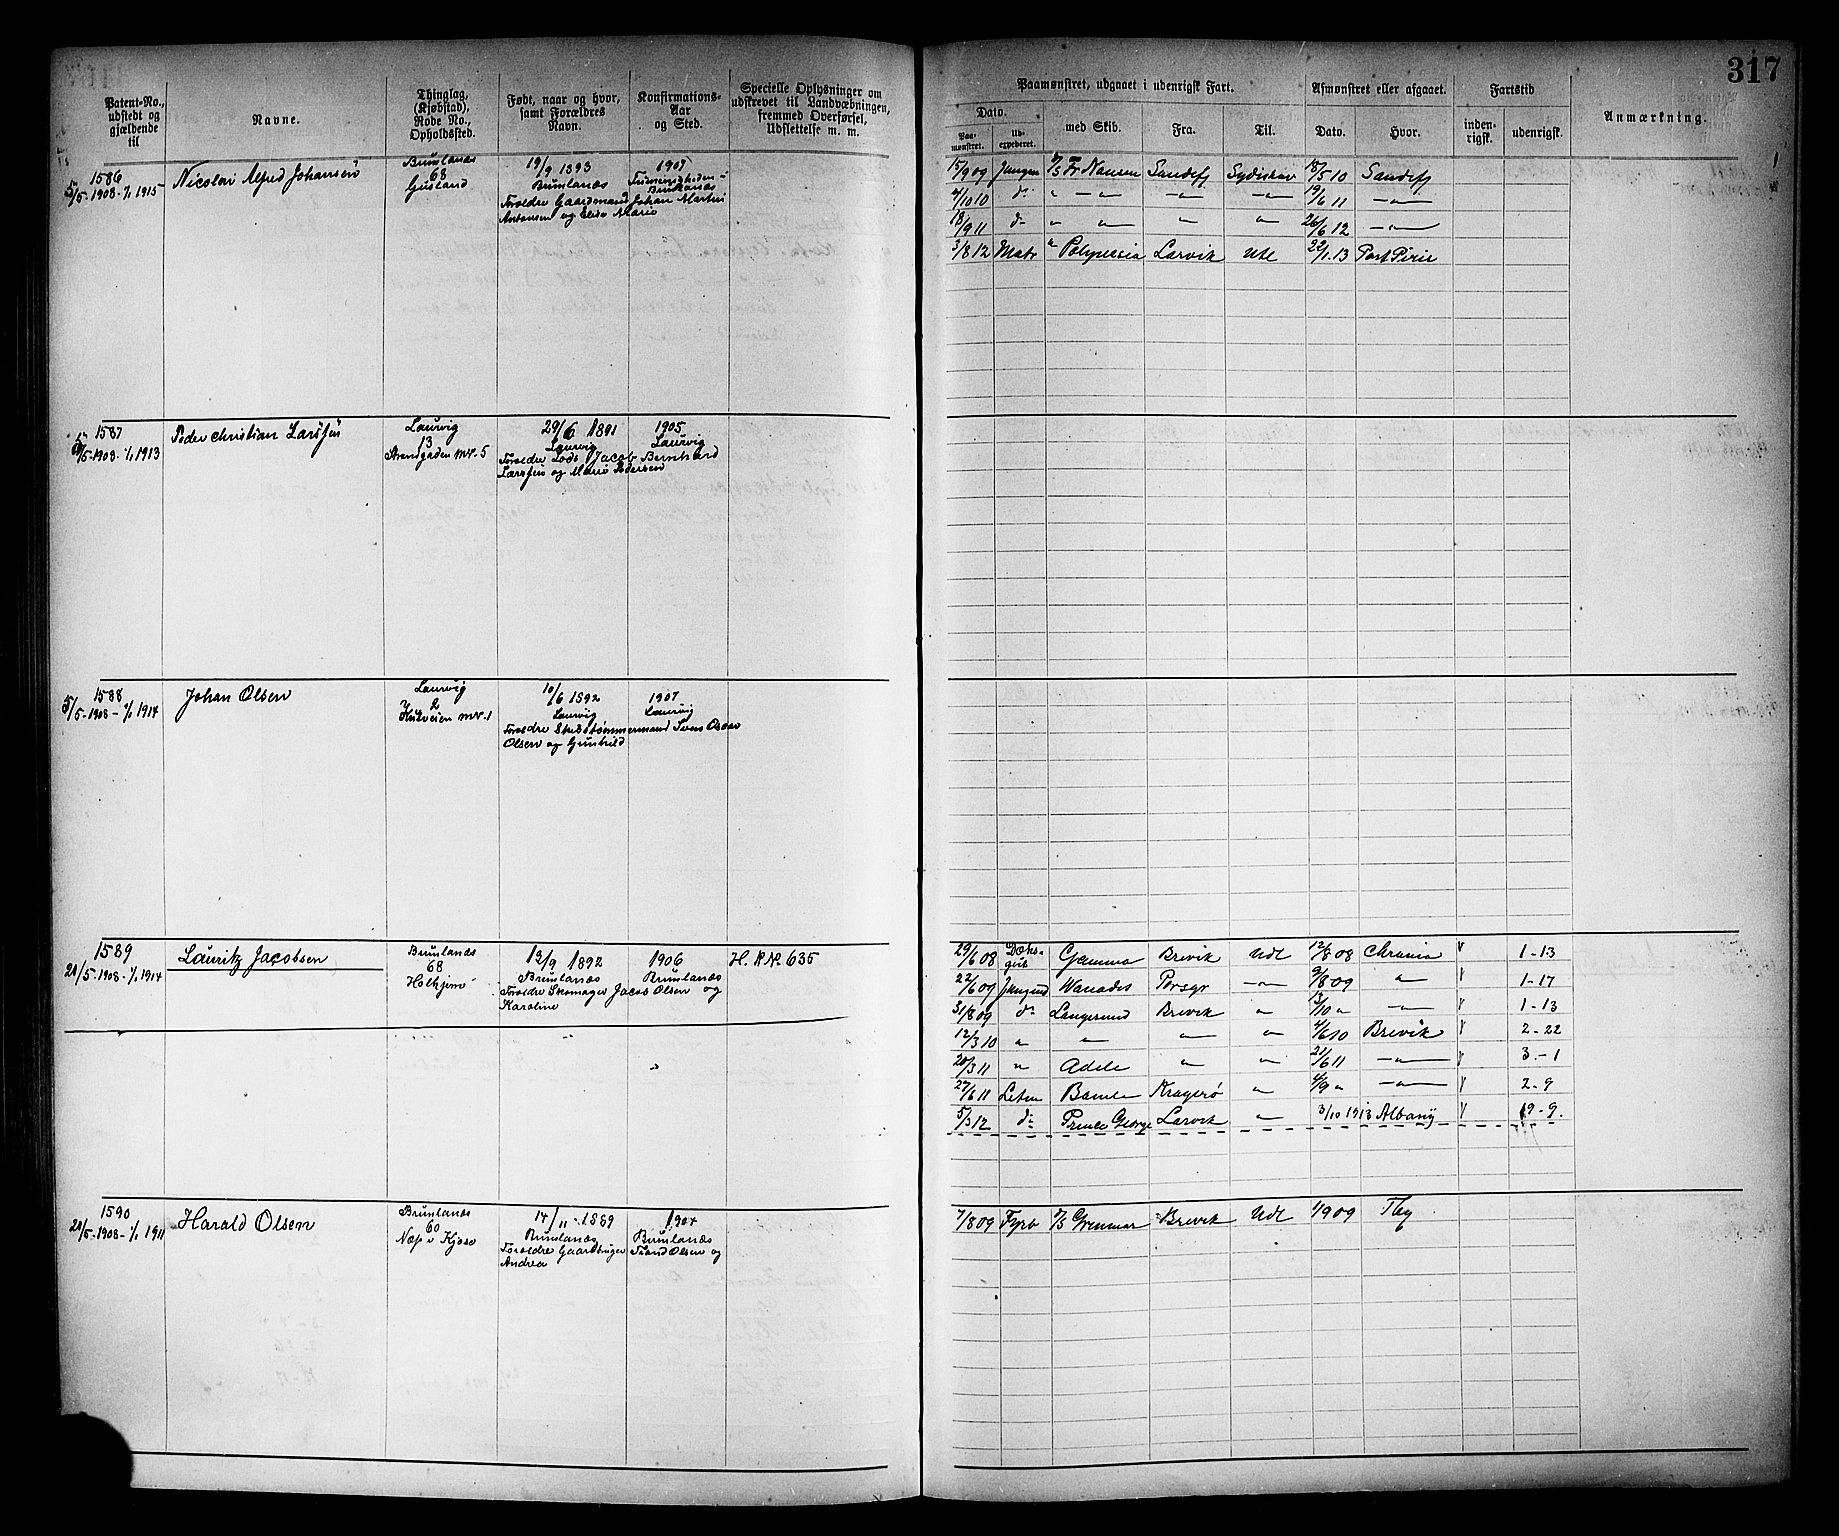 317
Patent-No., udstedt og gjældende til
Navne.
Thinglag, (Kjøbstad), Rode No., Opholdssted.
Født, naar og hvor, samt Forældres Navn.
Konfirmations-Aar og Sted.
Specielle Oplysninger om udskrevet til Landværnet, fremmed Overførsel, Udslettelse m. m.
Paamønstret, udgaaet i udenrigsk Fart.
Dato.
Paamønstret.
Udexpederet.
med Skib.
Fra.
Til.
Afmønstret eller afgaaet.
Dato.
Hvor.
Fartstid
indenrigsk.
udenrigsk.
Anmærkning.
1586
5/5-1908-1/1 1915
Nicolai Alfred Johansen
Brunlanæs
68
19/9 1893
Brunlanæs
Forældre Gaardmand Johan Martin
Antonsen og Elise Marie
1907
Brunlanæs
15/9 09 Jungm Fr Nansen Sandefj Sydishav 18/5 10 Sandefj
4/10 10 do " — " — — " — — " — 19/6 11 — " —
18/9 11 do " " " " 26/6 12 — " —
3/8 12 Matr " Polynesia Larvik Udl 22/1 13 Port Pirie
1587
5/5-1908-1/1 1913
Peder Christian Larssen
Laurvig
13
Strandgaden No. 5
29/6 1891
Laurvig
Forældre Lods Jacob Bernhard
Larssen og Marie Pedersen
1905
Laurvig
1588
5/5-1908-1/1 1914
Johan Olsen
Laurvig
2
No. 1
10/6 1892
Laurvig
Forældre Skibstømmermand Oscar
Olsen og Gunhild
1907
Laurvig
1589
21/5-1908-1/1 1914
Lauritz Jacobsen
Brunlanæs
68
13/9 1892
Brunlanæs
Forældre Skomager Jacob Olsen og
Karoline
1906
Brunlanæs
H. R No 635
29/6 08 Dæksgut Gamma Brevik Udl 12/8 08 Chrania 1-13
22/6 09 Jungmd Wanadis Porsgr — " — 9/8 09 " 1-17
31/8 09 do Langesund Brevik " 13/10 " — " — 1-13
12/3 10 " " — " — " 4/6 10 Brevik 2-22
20/3 11 " Adele " " 21/6 11 — " — 3-1
27/6 11 Letm Bamle Kragerø " 4/9 " — " — 2-9
5/3 12 do Prince George Larvik " 3/10 1913 Albany 19-9.
1590
21/5-1908-1/1 1911
Harald Olsen
Brunlanæs
60
14/11-1889
Brunlanæs
Forældre Gaardbruger Trand Olsen og
Andrea
1904
Brunlanæs
7/8 09 Fyrb Grenmar Brevik Udl 1909